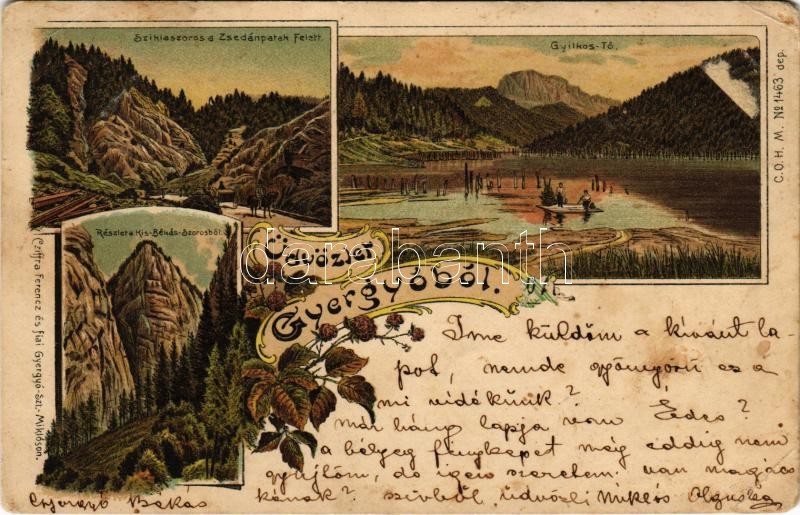 Sziklaszoros a Zsedánpatak Felett.
Gyilkos-Tó.
C.O.H.M. No 1463 dep.
Részlet a Kis-Békás-Szorosból.
Üdvözlet
Gyergyóból.
darabanth
Cziffra Ferencz és fiai Gyergyó-Szt.-Miklóson.
Ime küldöm a kivánt la-
pot, nemde gyönyörű ez a
mi vidékünk?
már hány lapja van Édes?
a bélyeg fényképet még eddig nem
gyűjtöm, de igen szeretem. van magács
kának? szivből üdvözli Miklós
Gyergyó Békás